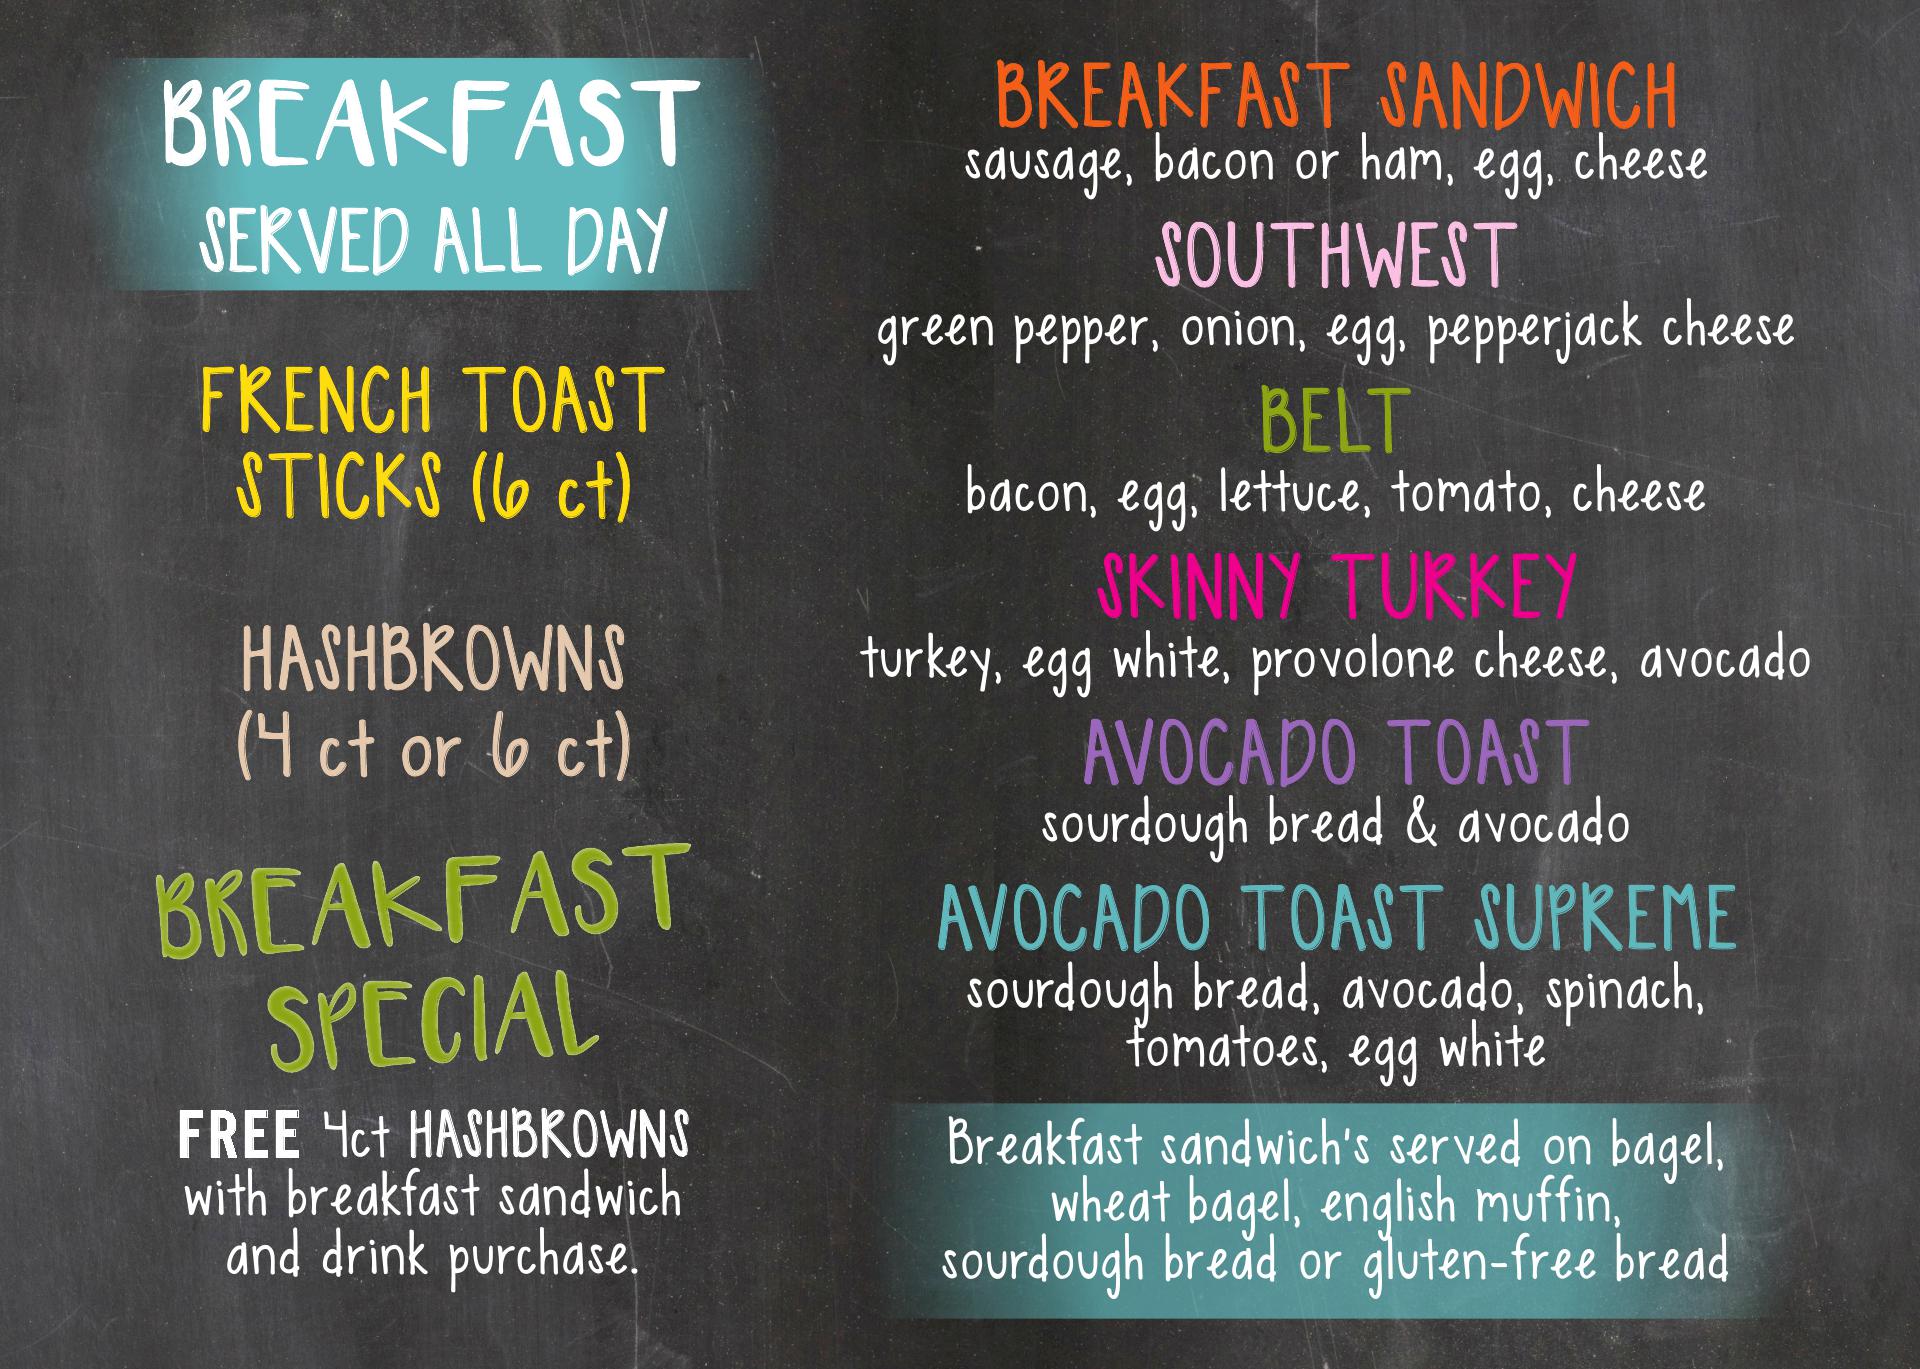 BREAKFAST
SERVED ALL DAY
FRENCH TOAST
STICKS (6 ct)
HASHBROWNS
(4 ct or 6 ct)
BREAKFAST
SPECIAL
FREE 4ct HASHBROWNS
with breakfast sandwich
and drink purchase.
BREAKFAST SANDWICH
sausage, bacon or ham, egg, cheese
SOUTHWEST
green pepper, onion, egg, pepperjack cheese
BELT
bacon, egg, lettuce, tomato, cheese
SKINNY TURKEY
turkey, egg white, provolone cheese, avocado
AVOCADO TOAST
sourdough bread & avocado
AVOCADO TOAST SUPREME
sourdough bread, avocado, spinach,
tomatoes, egg white
Breakfast sandwich's served on bagel,
wheat bagel, english muffin,
sourdough bread or gluten-free bread